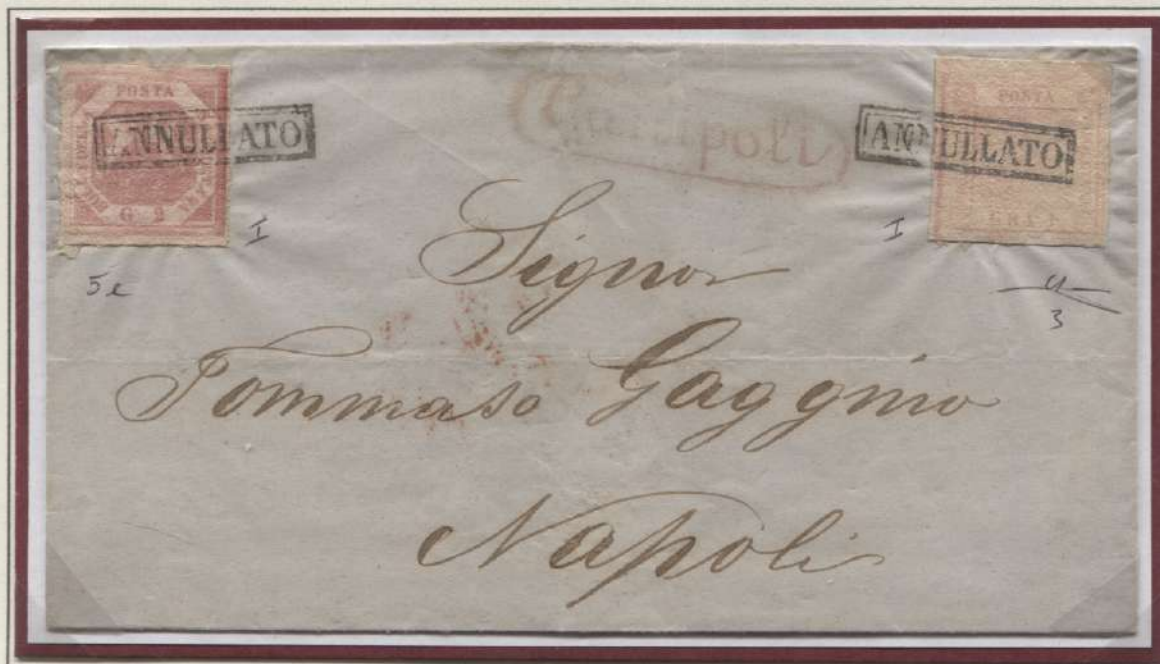 POSTA
ANNULLATO
G. 2
I
5e
Gallipoli
POSTA
ANNULLATO
GRA. 1
I
3
Signor
Tommaso Gaggino
Napoli